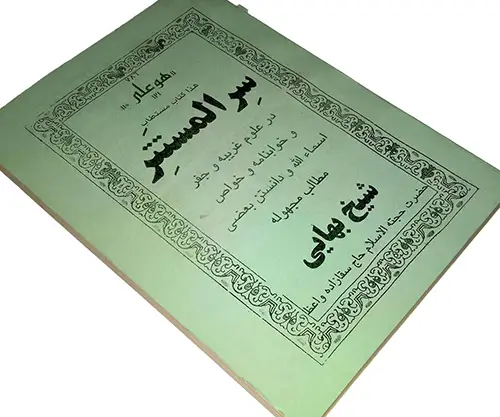 ٧٨٦
هو علی
١١٠ ١٢١
هذا کتاب مستطاب
سِر المستتر
در علوم غریبه و جفر
و خوابنامه و خواص
اسماء الله و دانستن بعضی
مطالب مجهوله
شیخ بهایی
حضرت حجته الاسلام حاج سقازاده واعظ